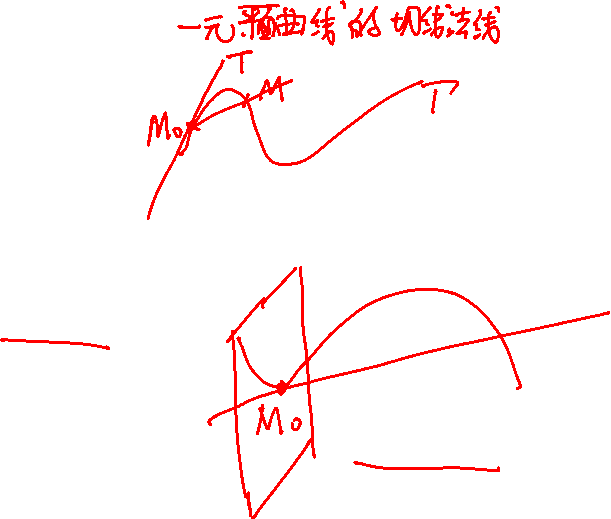 一元平面曲线的切线法线
T
M
M₀
Γ
M₀